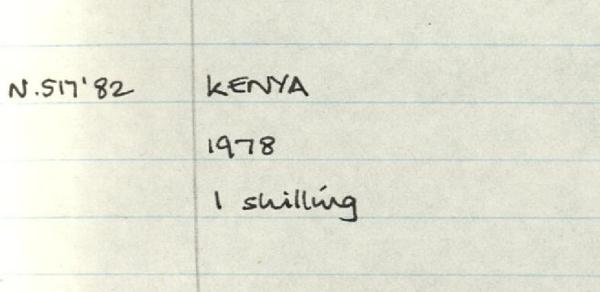 N.517'82 KENYA
1978
1 shilling